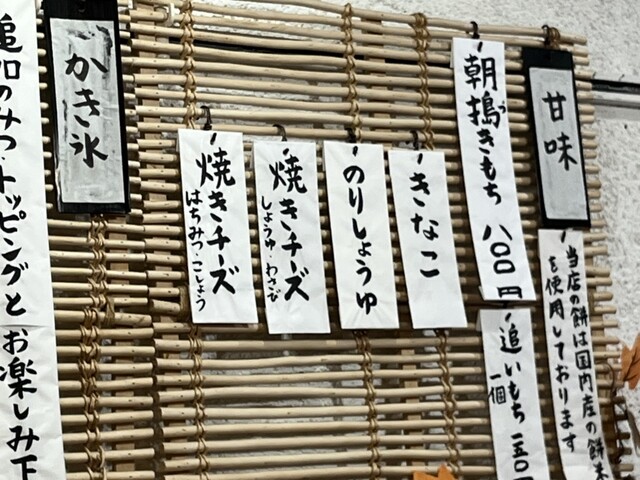 甘味
当店の餅は国内産の餅米
を使用しております
朝搗きもち 八〇〇円
づ
追いもち 一五〇円
一個
きなこ
のりしょうゆ
焼きチーズ
しょうゆ・わさび
焼きチーズ
はちみつ・こしょう
かき氷
追加のみつ・トッピングと
お楽しみ下